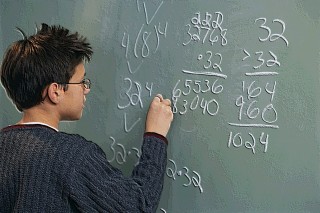 4(8)4
324
32
32·32
222
32768
·32
65536
83040
32
×32
164
960
1024